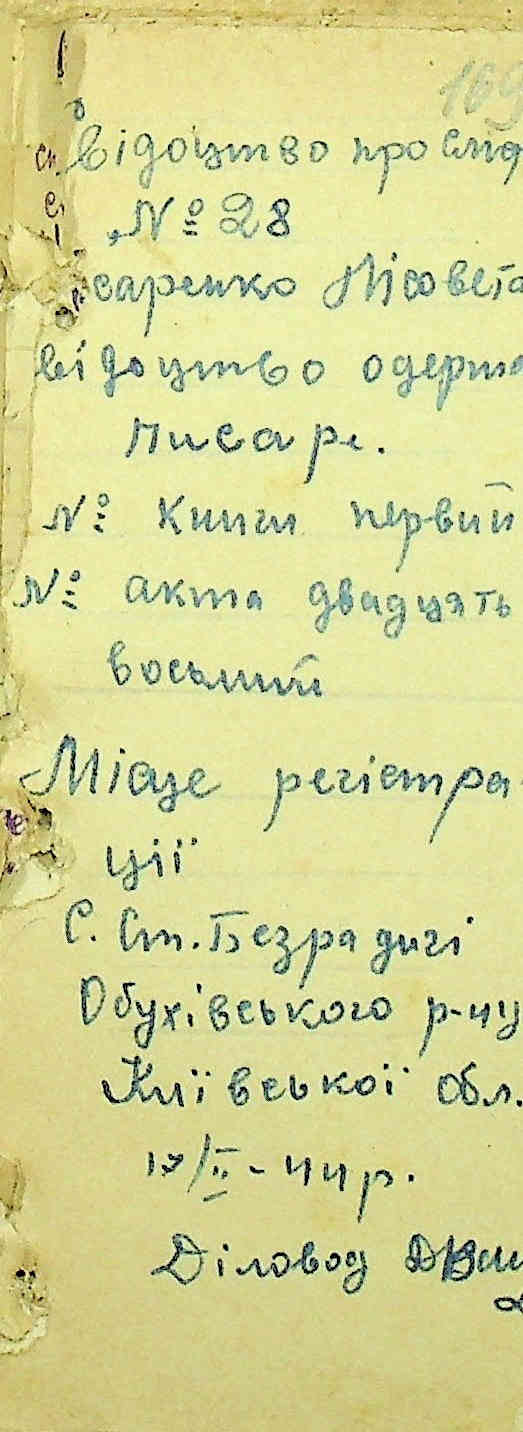 169
відоцтво про смер
№ 28
саренко Лісовета
відоцтво одержа
писаре.
№ книги первий
№ акта двадцять
восьмий
Місце регістра-
ції
С. Ст. Безрадичі
Обухівського р-ну
Київської обл.
17/II - 44 р.
Діловод